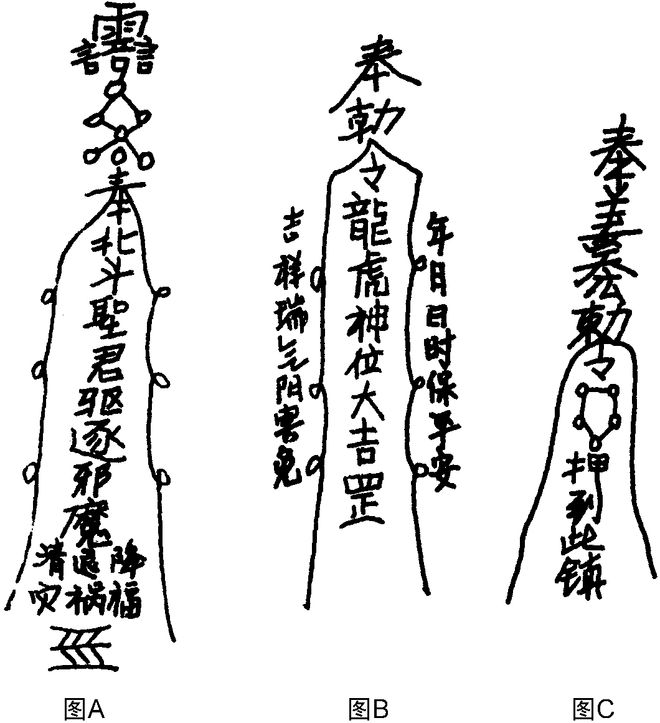 奉
北斗聖君驱逐邪魔
消灾
退祸
降福
奉勅
令龍虎神位大吉罡
吉祥瑞气阴害免
年月日时保平安
奉
勅
令
押到此镇
图A
图B
图C